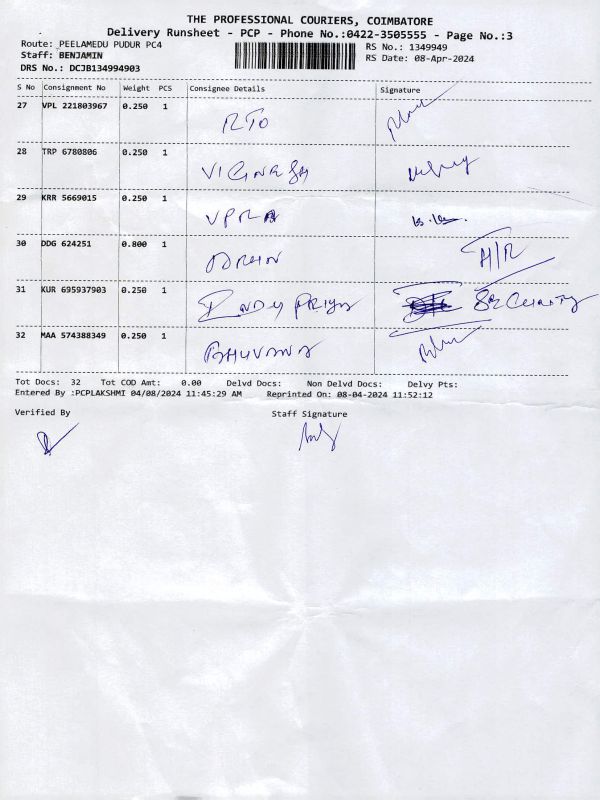 THE PROFESSIONAL COURIERS, COIMBATORE
Delivery Runsheet - PCP - Phone No.:0422-3505555 - Page No.:3
Route: PEELAMEDU PUDUR PC4 RS No.: 1349949
Staff: BENJAMIN RS Date: 08-Apr-2024
DRS No.: DCJB134994903
S No Consignment No Weight PCS Consignee Details Signature
27 VPL 221803967 0.250 1 RTO
28 TRP 6780806 0.250 1 VIGNESH
29 KRR 5669015 0.250 1
30 DDG 624251 0.800 1 H/R
31 KUR 695937903 0.250 1 PRIYA SECURITY
32 MAA 574388349 0.250 1 BHUVANA
Tot Docs: 32 Tot COD Amt: 0.00 Delvd Docs: Non Delvd Docs: Delvy Pts:
Entered By :PCPLAKSHMI 04/08/2024 11:45:29 AM Reprinted On: 08-04-2024 11:52:12
Verified By Staff Signature